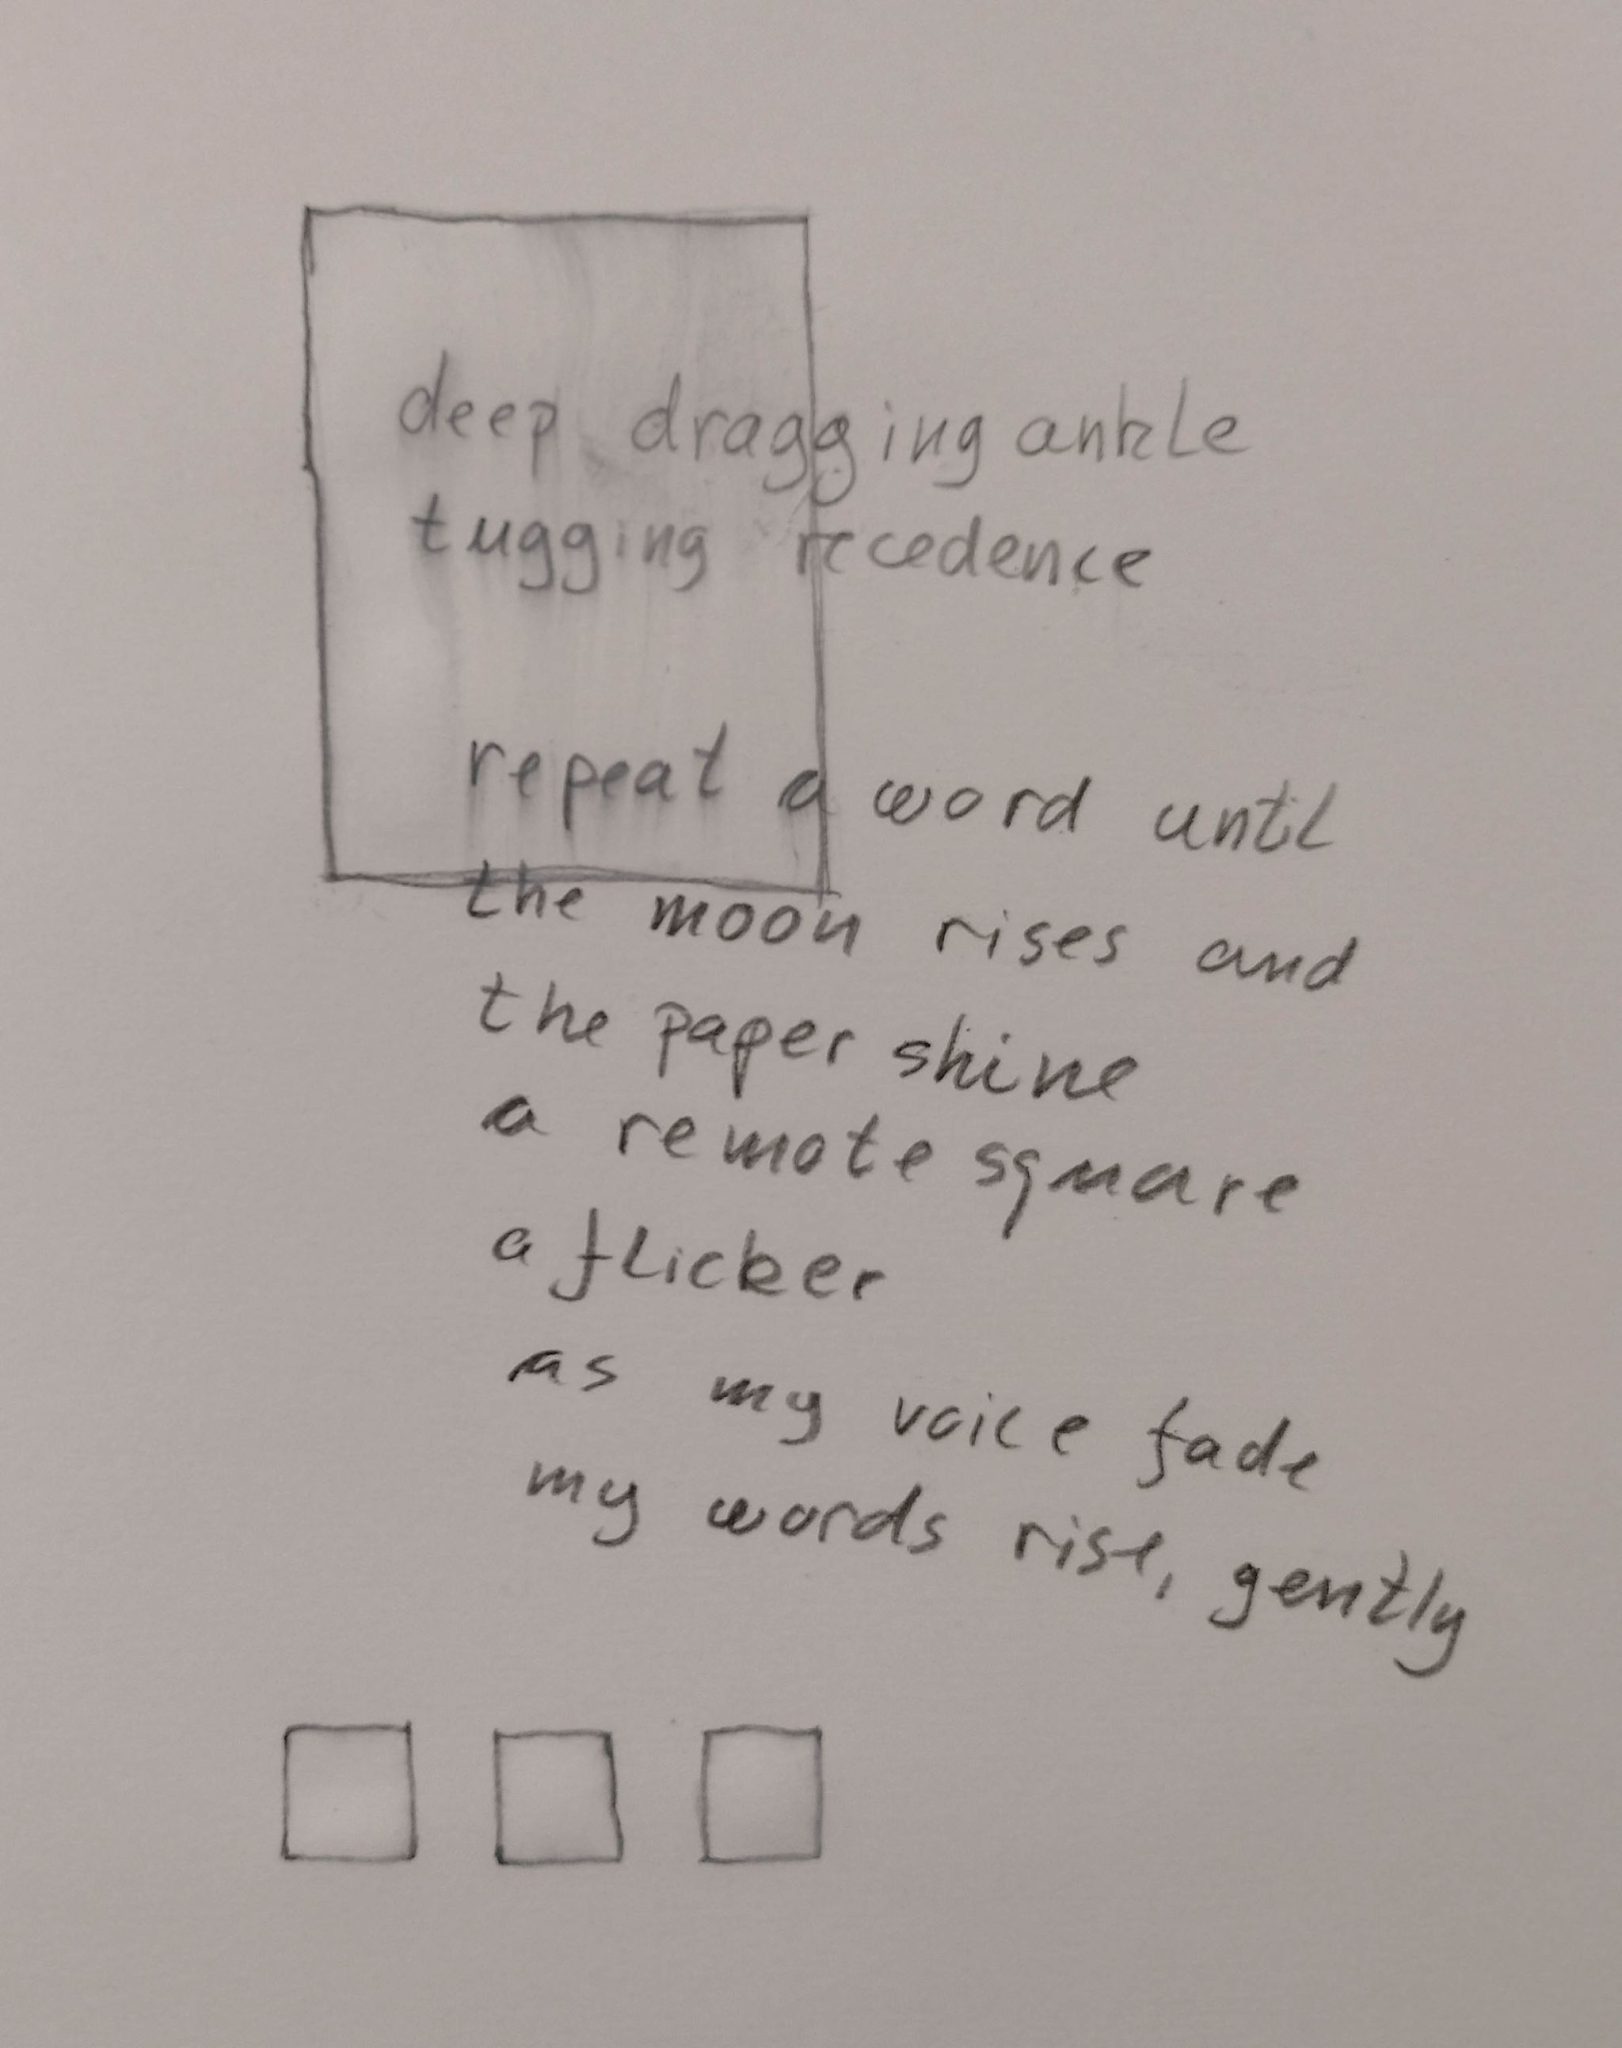 deep dragging ankle
tugging recedence
repeat a word until
the moon rises and
the paper shine
a remote square
a flicker
as my voice fade
my words rise, gently